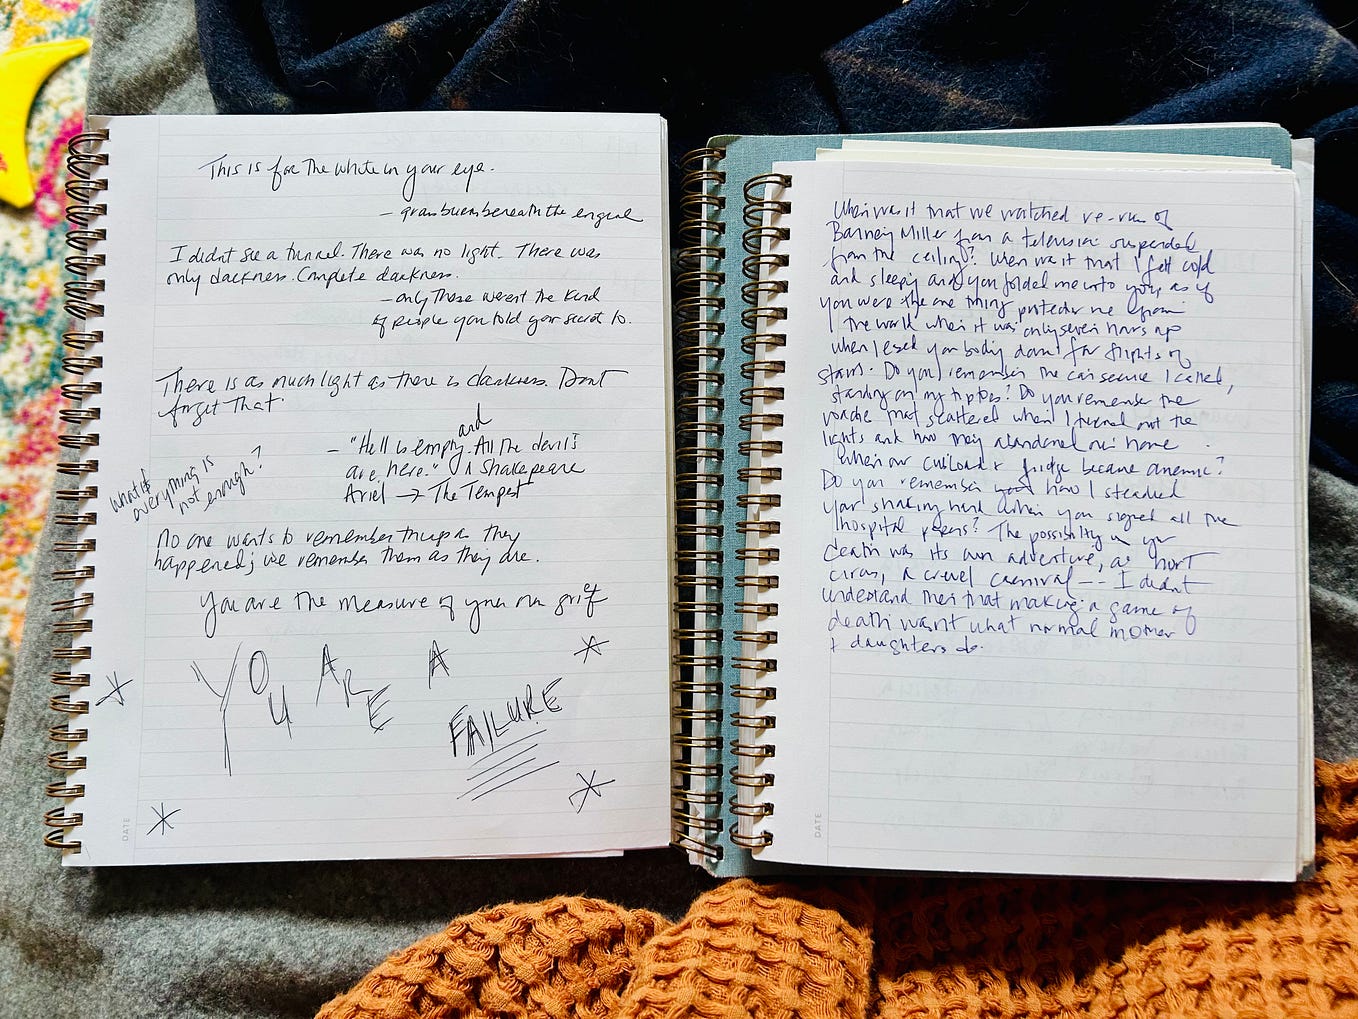 This is for the white in your eye.
— gram burns beneath the engine
I didnt see a tunnel. There was no light. There was
only darkness. Complete darkness.
— only those werent the kind
of people you told your secret to.
There is as much light as there is darkness. Dont
forget that
and
— "Hell is empty. All the devils
are here." Shakespeare
Ariel → The Tempest
what if
everything is
not enough?
No one wants to remember things as they
happened; we remember them as they are.
You are the measure of your own grief
YOU ARE A
FAILURE
DATE
When was it that we watched re-runs of
Barney Miller from a television suspended
from the ceiling? When was it that I felt cold
and sleepy and you folded me into you, as if
you were the one thing protecting me from
the world when it was only seven hours ago
when I eased your body down four flights of
stairs. Do you remember the car service I called,
standing on my tiptoes? Do you remember the
roaches that scattered when I turned out the
lights and how they abandoned our home
when our cupboard & fridge became anemic?
Do you remember how I steadied
your shaking hand when you signed all the
hospital papers? The possibility in your
death was its own adventure, a
circus, a cruel carnival -- I didnt
understand then that making a game of
death wasnt what normal mother
+ daughters do.
DATE